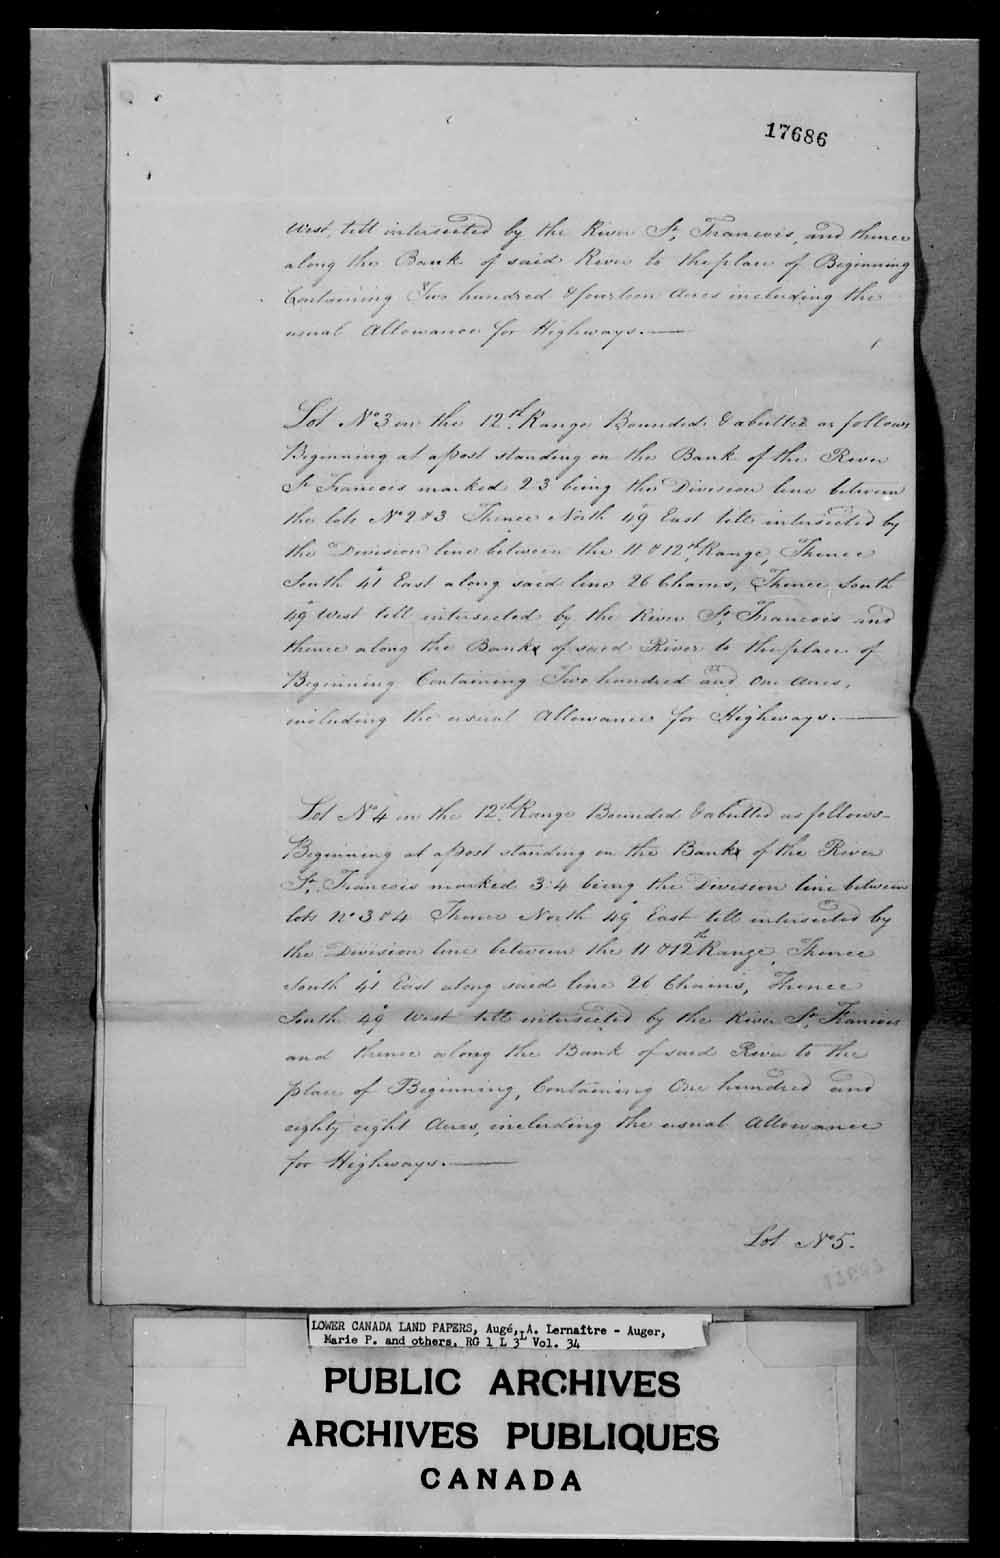 17686
West, till intersected by the River St. Francois, and thence
along the Bank of said River to the place of Beginning
Containing Two hundred & fourteen Acres including the
usual Allowance for Highways.—
Lot No 3 on the 12th Range Bounded & abutted as follows
Beginning at a Post standing on the Bank of the River
St Francois marked 2 3 being the Division line between
the lots No 2 & 3 Thence North 49° East till intersected by
the Division line between the 11 & 12th Range, Thence
South 41° East along said line 26 Chains, Thence South
49° West till intersected by the River St. Francois and
thence along the Bank of said River to the place of
Beginning Containing Two hundred and One Acres,
including the usual Allowance for Highways.—
Lot No 4 in the 12th Range Bounded & abutted as follows-
Beginning at a Post standing on the Bank of the River
St. Francois marked 3:4 being the Division line between
lots No 3 & 4 Thence North 49° East till intersected by
the Division line between the 11 & 12th Range, Thence
South 41° East along said line 26 Chains, Thence
South 49° West till intersected by the River St. Francois
and thence along the Bank of said River to the
place of Beginning, Containing One hundred and
eighty eight Acres, including the usual Allowance
for Highways.—
Lot No 5.
LOWER CANADA LAND PAPERS, Augé, A. Lernaître - Auger,
Marie P. and others. RG 1 L 3L Vol. 34
PUBLIC ARCHIVES
ARCHIVES PUBLIQUES
CANADA